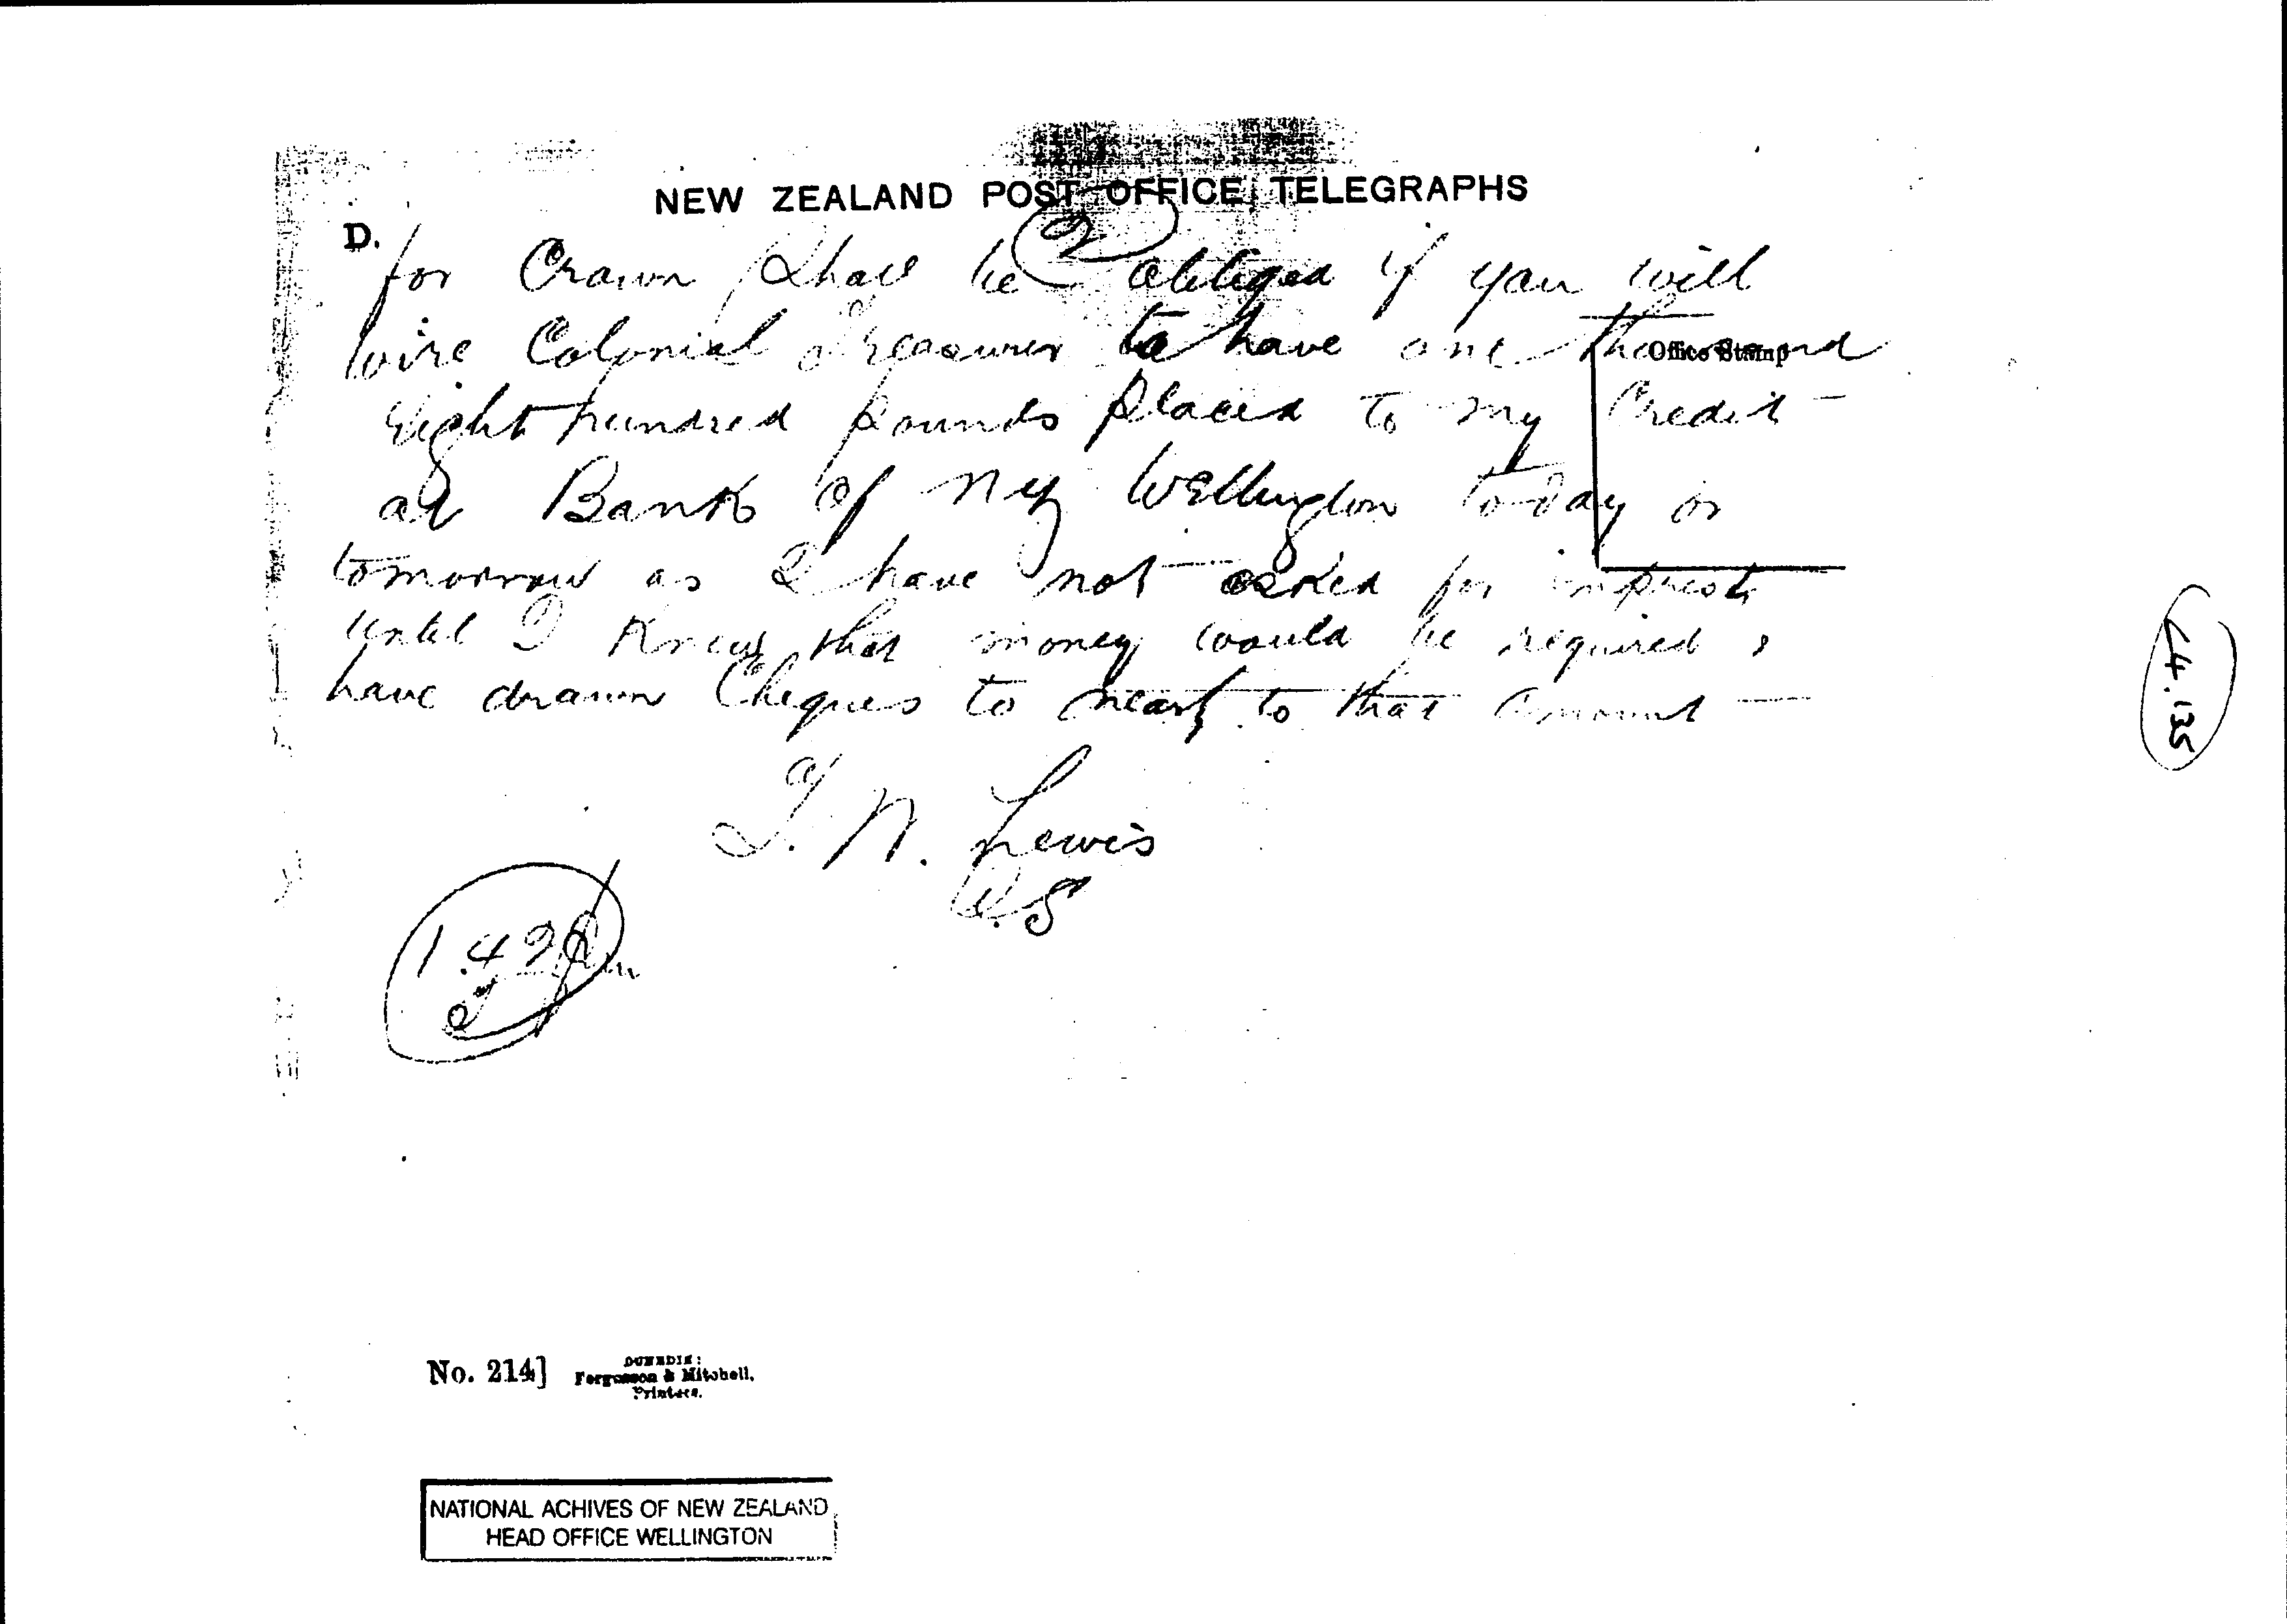 NEW ZEALAND POST OFFICE TELEGRAPHS
D.
2
for Crown Shall be obliged if you will
wire Colonial Treasurer to have one thousand
Office Stamp
Eight hundred pounds placed to my Credit
at Bank of NZ Wellington today or
tomorrow as I have not asked for imprest
until I knew that money would be required &
have drawn Cheques to nearly to that amount
T. W. Lewis
U.S
1.42 pm
44.135
No. 214]
DUNEDIN:
Fergusson & Mitchell,
Printers.
NATIONAL ACHIVES OF NEW ZEALAND
HEAD OFFICE WELLINGTON